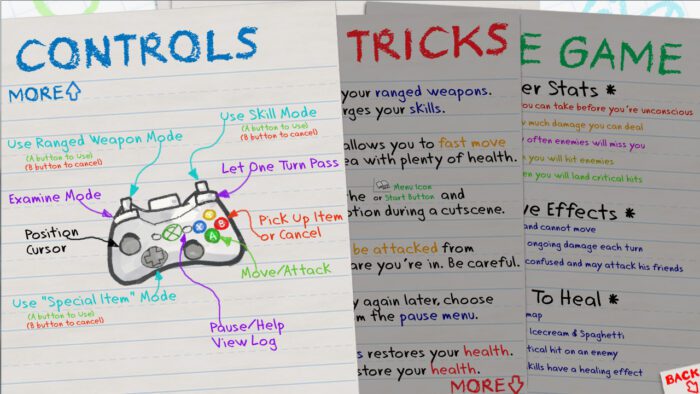 CONTROLS
MORE
Use Skill Mode
(A button to use)
(B button to cancel)
Use Ranged Weapon Mode
(A button to Use)
(B button to cancel)
Let One Turn Pass
Examine Mode
Position
Cursor
Pick Up Item
or Cancel
X
Y
B
A
Move/Attack
Use "Special Item" Mode
(A button to Use)
(B button to cancel)
Pause/Help
View Log
TRICKS
your ranged weapons.
rges your skills.
allows you to fast move
ea with plenty of health.
the Menu Icon
or Start Button and
ption during a cutscene.
be attacked from
are you're in. Be careful.
y again later, choose
om the pause menu.
s restores your health.
store your health.
MORE
E GAME
er Stats *
ou can take before you're unconscious
w much damage you can deal
often enemies will miss you
you will hit enemies
en you will land critical hits
ve Effects *
and cannot move
ongoing damage each turn
confused and may attack his friends
To Heal *
map
Icecream & Spaghetti
tical hit on an enemy
kills have a healing effect
BACK